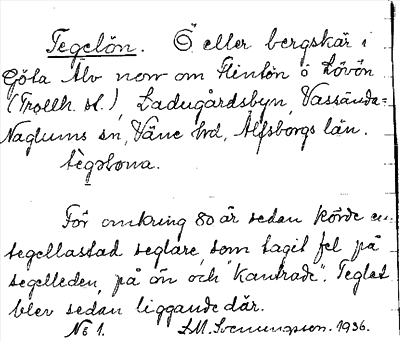 Tegelön. Ö eller bergskär i
Göta Älv norr om Flintön o Lövön
(Trollh. st.), Ladugårdsbyn, Vassända-
Naglums sn, Väne hrd, Älfsborgs län.
För omkring 80 år sedan körde en
tegellastad seglare, som tagit fel på
segelleden, på ön och "kantrade". Teglet
blev sedan liggande där.
No 1. 1936.